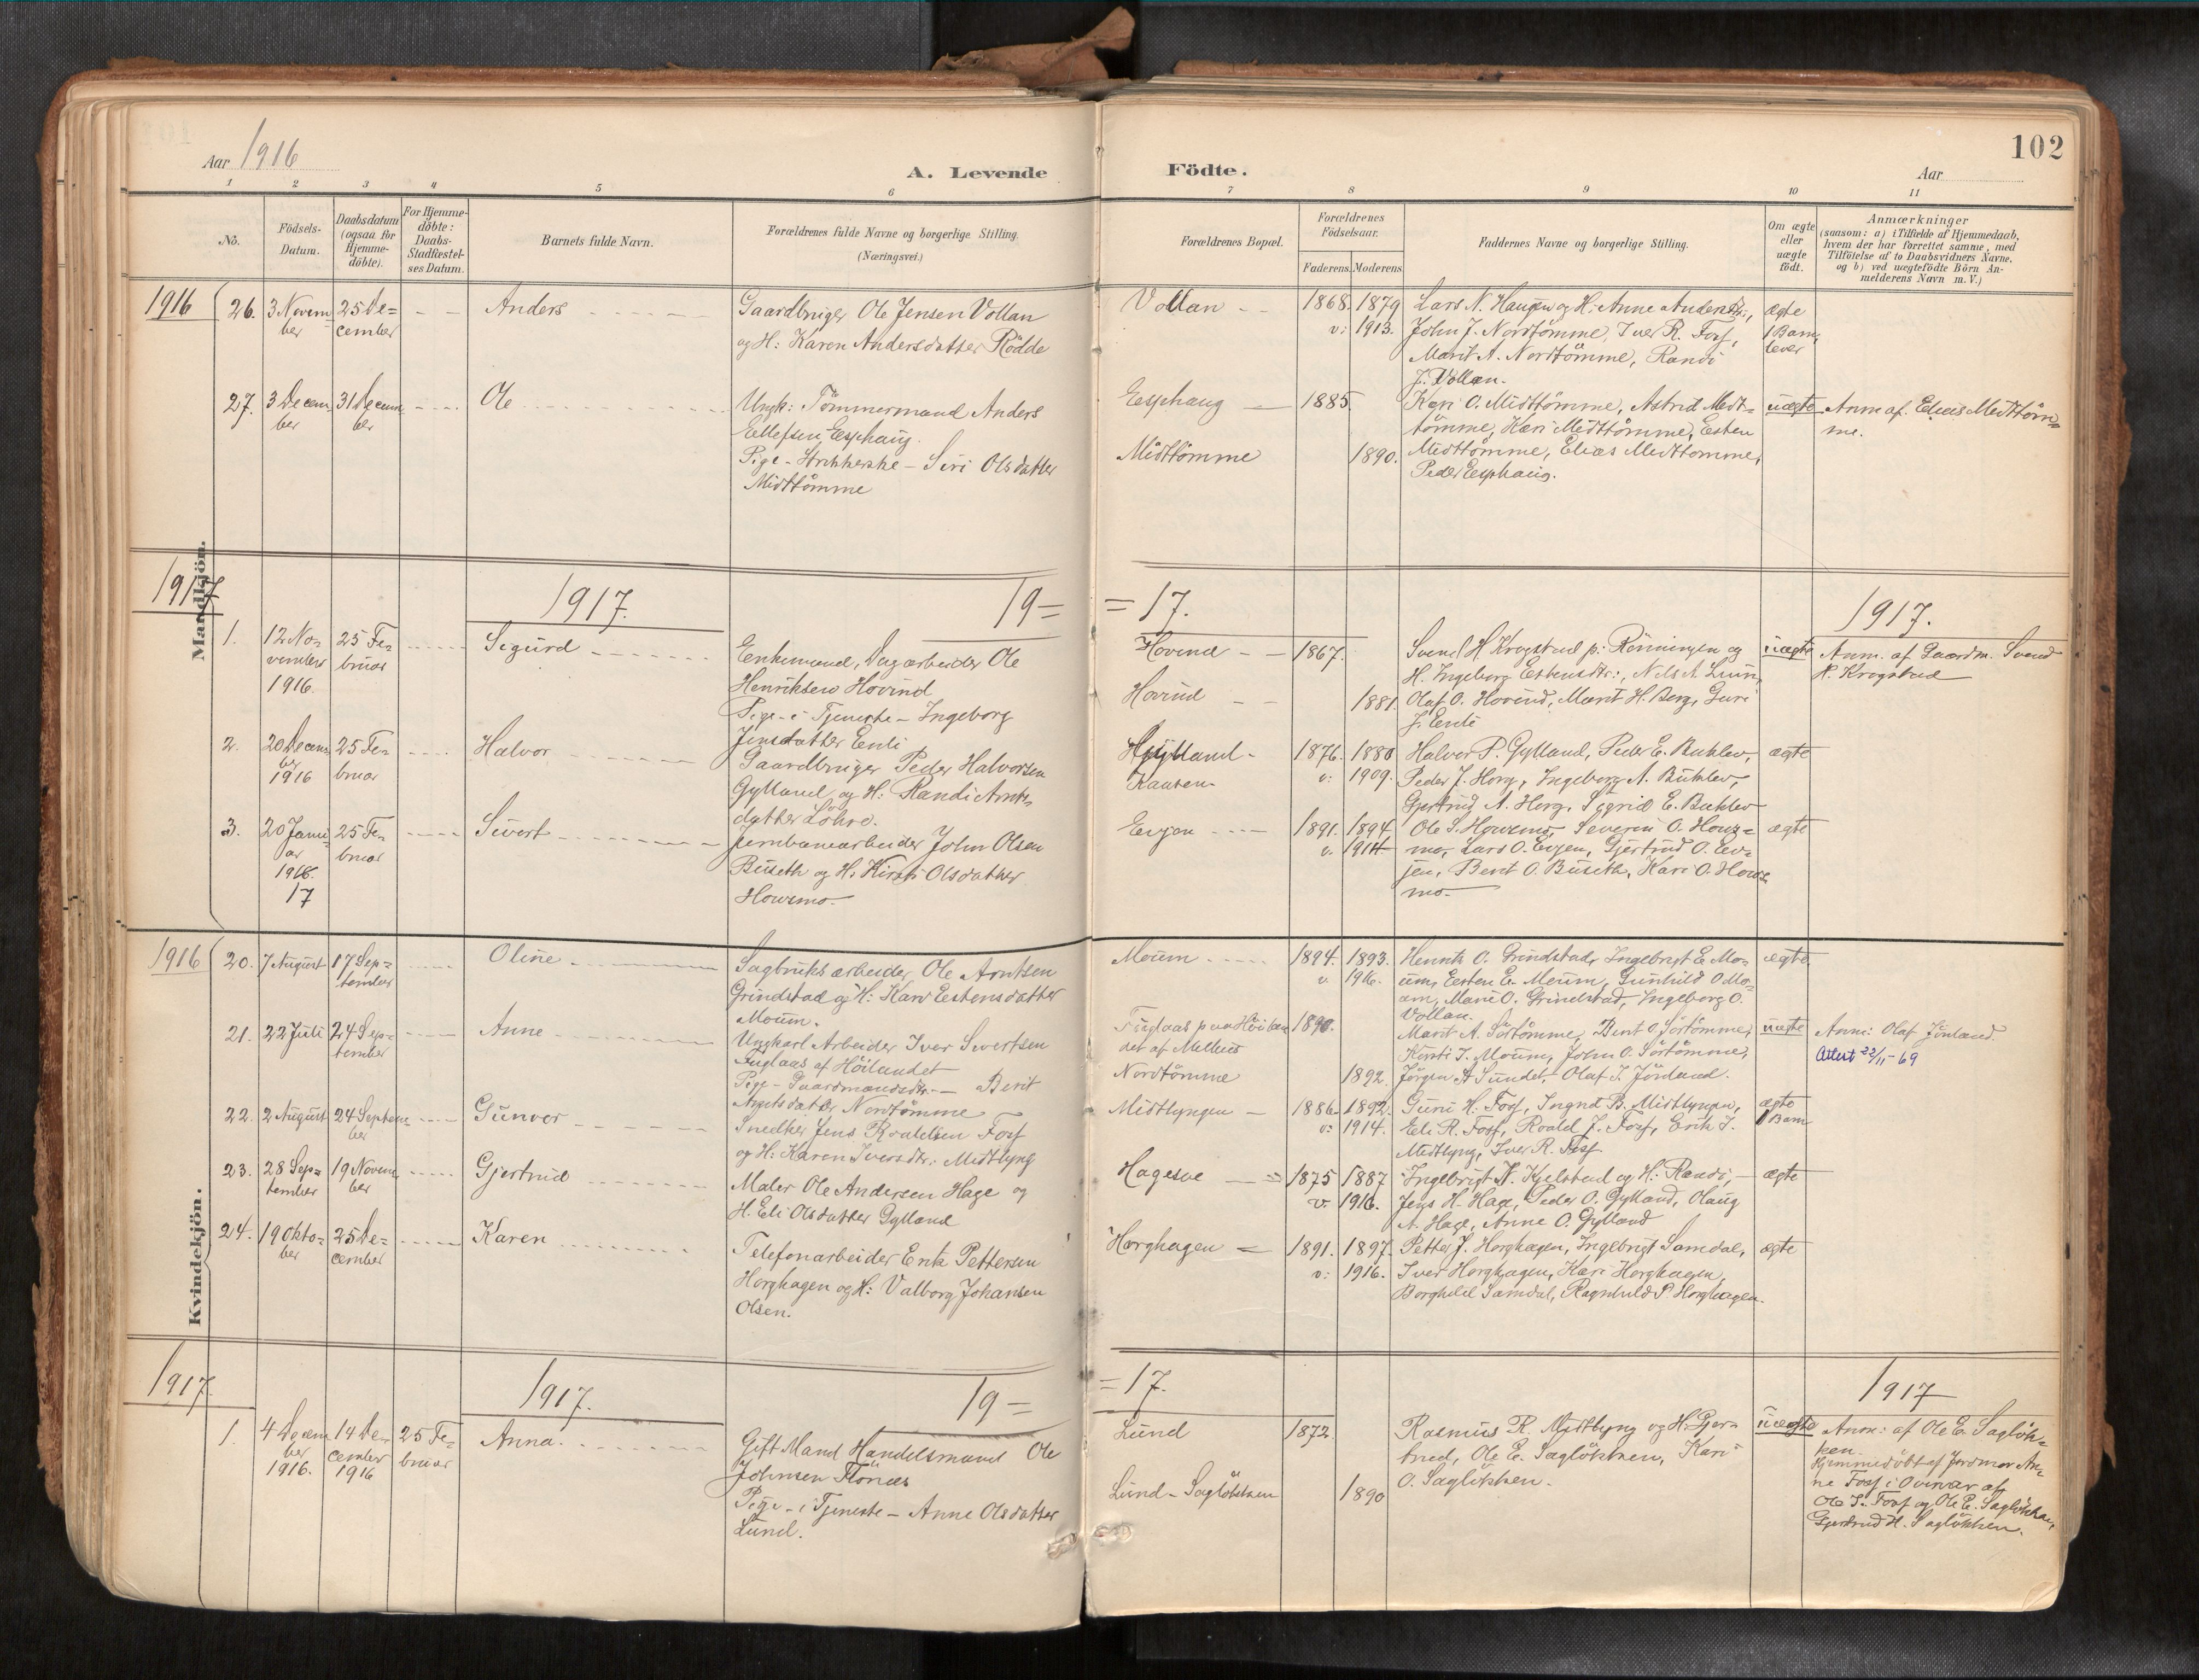 102
Aar 1916
A. Levende Födte.
Aar
1 2 3 4 5 6 7 8 9 10 11
No.
Födsels-
Datum.
Daabsdatum
(ogsaa for
Hjemme-
döbte).
For Hjemme-
döbte:
Daabs-
Stadfæstel-
ses Datum.
Barnets fulde Navn.
Forældrenes fulde Navne og borgerlige Stilling
(Næringsvei.)
Forældrenes Bopæl.
Forældrenes
Födselsaar.
Faderens. Moderens.
Faddernes Navne og borgerlige Stilling.
Om ægte
eller
uægte
födt.
Anmærkninger
(saasom: a) i Tilfælde af Hjemmedaab,
hvem der har forrettet samme, med
Tilföielse af to Daabsvidners Navne.
og b) ved uægtefödte Börn An-
melderens Navn m. V.)
Mandkjön.
1916
26.
3 Novem
ber
25 De=
cember
Anders
Gaardbruger Ole Jensen Vollan
og H: Karen Andersdatter Rödde
Vollan
1868. 1879
v: 1913.
Lars N. Haugen og H. Anne Andersdtr.,
John J. Nordtömme, Iver R. Fosf,
Marit A. Nordtömme, Randi
J. Vollan.
ægte
1 Barn
lever
27.
3 Decem
ber
31 Decem
ber
Ole
Ungk: Tömmermand Anders
Ellefsen Eesphaug.
Pige - Strikkerske - Siri Olsdatter
Midttömme
Eesphaug
Midttömme
1885.
1890.
Kari O. Midttömme, Astrid Midt=
tömme, Kari Midttömme, Esten
Midttömme, Elias Midttömme,
Peder Eesphaug.
uægte
Anm af. Elias Midttöm=
me.
1917 1917. 19= =17. 1917.
1.
12 No=
vember
1916.
25 Fe=
bruar
Sigurd
Enkemand, Dagarbeider Ole
Henriksen Hovind
Pige - i Tjeneste - Ingeborg
Jensdatter Enli
Hovind
Hovind
1867.
1881.
Svend H. Krogstad p: Rönningen og
H. Ingeborg Estensdtr:, Nils A. Lium,
Olaf O. Hovind, Marit H. Berg, Guri
J. Enli
uægte
Anm. af Gaardm. Svend
H. Krogstad
2.
20 Decem
ber
1916
25 Fe=
bruar
Halvor
Gaardbruger Peder Halvorsen
Gylland og H: Randi Arnts=
datter Löhre.
Gylland
Kauten
1876. 1880
v: 1909.
Halvor P. Gylland, Peder E. Buklev,
Peder J. Horg, Ingeborg A. Buklev,
Gjertrud A. Horg, Sigrid E. Buklev
ægte
3.
20 Janu
ar
1916.
17
25 Fe=
bruar
Sivert
Jernbanearbeider John Olsen
Buseth og H. Kirsti Olsdatter
Howsmo.
Evjen
1891. 1894.
v. 1914
Ole S. Howsmo, Severin O. Hows=
mo, Lars O. Evjen, Gjertrud O. Ev=
jen, Berit O. Buseth, Kari O. Hows
mo.
ægte
Kvindekjön.
1916
20.
7 August
17 Sep=
tember
Oline
Sagbruksarbeider Ole Arntsen
Grindstad og H: Kari Estensdatter
Moum.
Moum
1894. 1893.
v. 1916.
Henrik O. Grindstad, Ingebrigt E. Mo=
um, Esten E. Moum, Gunhild O Mo=
um, Marie O. Grindstad, Ingeborg O.
Vollan.
ægte
21.
22 Juli
24 Sep=
tember
Anne
Ungkarl Arbeider Iver Sivertsen
Fuglaas af Höilandet
Pige - Gaardmandsdtr. - Berit
Arntsdatter Nordtömme
Fuglaas paa Höilan
det af Melhus
Nordtömme
1890.
1892.
Marit A. Sörtömme, Berit O. Sörtömme,
Kirsti I. Moum, John O. Sörtömme,
Jörgen A Sundet, Olaf J. Jönland.
uægte
Anm: Olaf Jönland.
Attest 22/11-69
22.
2 August
24 Septem
ber
Gunvor
Snedker Jens Roaldsen Fosf
og H: Karen Iversdtr: Midtlyng
Midtlyngen
1886. 1892.
v: 1914.
Guri H. Fosf, Ingrid B. Midtlyngen,
Eli R. Fosf, Roald J. Fosf, Erik I.
Midtlyng, Iver R. Fosf.
ægte
1 Barn
23.
28 Sep=
tember
19 Novem
ber
Gjertrud
Maler Ole Andersen Hage og
H. Eli Olsdatter Gylland
Hagesve
1875 1887
v. 1916.
Ingebrigt N. Kjelstad og H: Randi,
Jens H. Hage, Peder O. Gylland, Olaug
A. Hage, Anne O. Gylland
ægte
24.
19 Okto=
ber
25 De=
cember
Karen
Telefonarbeider Erik Pettersen
Horghagen og H: Valborg Johansen
Olsen.
Horghagen
1891. 1897.
v: 1916.
Petter J. Horghagen, Ingebrigt Samdal,
Iver Horghagen, Kari Horghagen,
Borghild Samdal, Ragnhild P. Horghagen.
ægte
1917. 1917. 19= =17. 1917
1.
4 Decem
ber
1916.
14 De
cember
1916
25 Fe=
bruar
Anna.
Gift Mand Handelsmand Ole
Johnsen Flönæs
Pige - i Tjeneste - Anne Olsdatter
Lund.
Lund
Lund - Saglökken
1872.
1890
Rasmus R. Midtlyng og H. Gjer=
trud, Ole E. Saglökken, Kari
O. Saglökken.
uægte
Anm: af Ole E. Saglök=
ken.
Hjemmedöbt af Jordmor An=
ne Fosf i Overvær af
Ole I. Fosf og Ole E. Saglökken,
Gjertrud H. Saglökken.